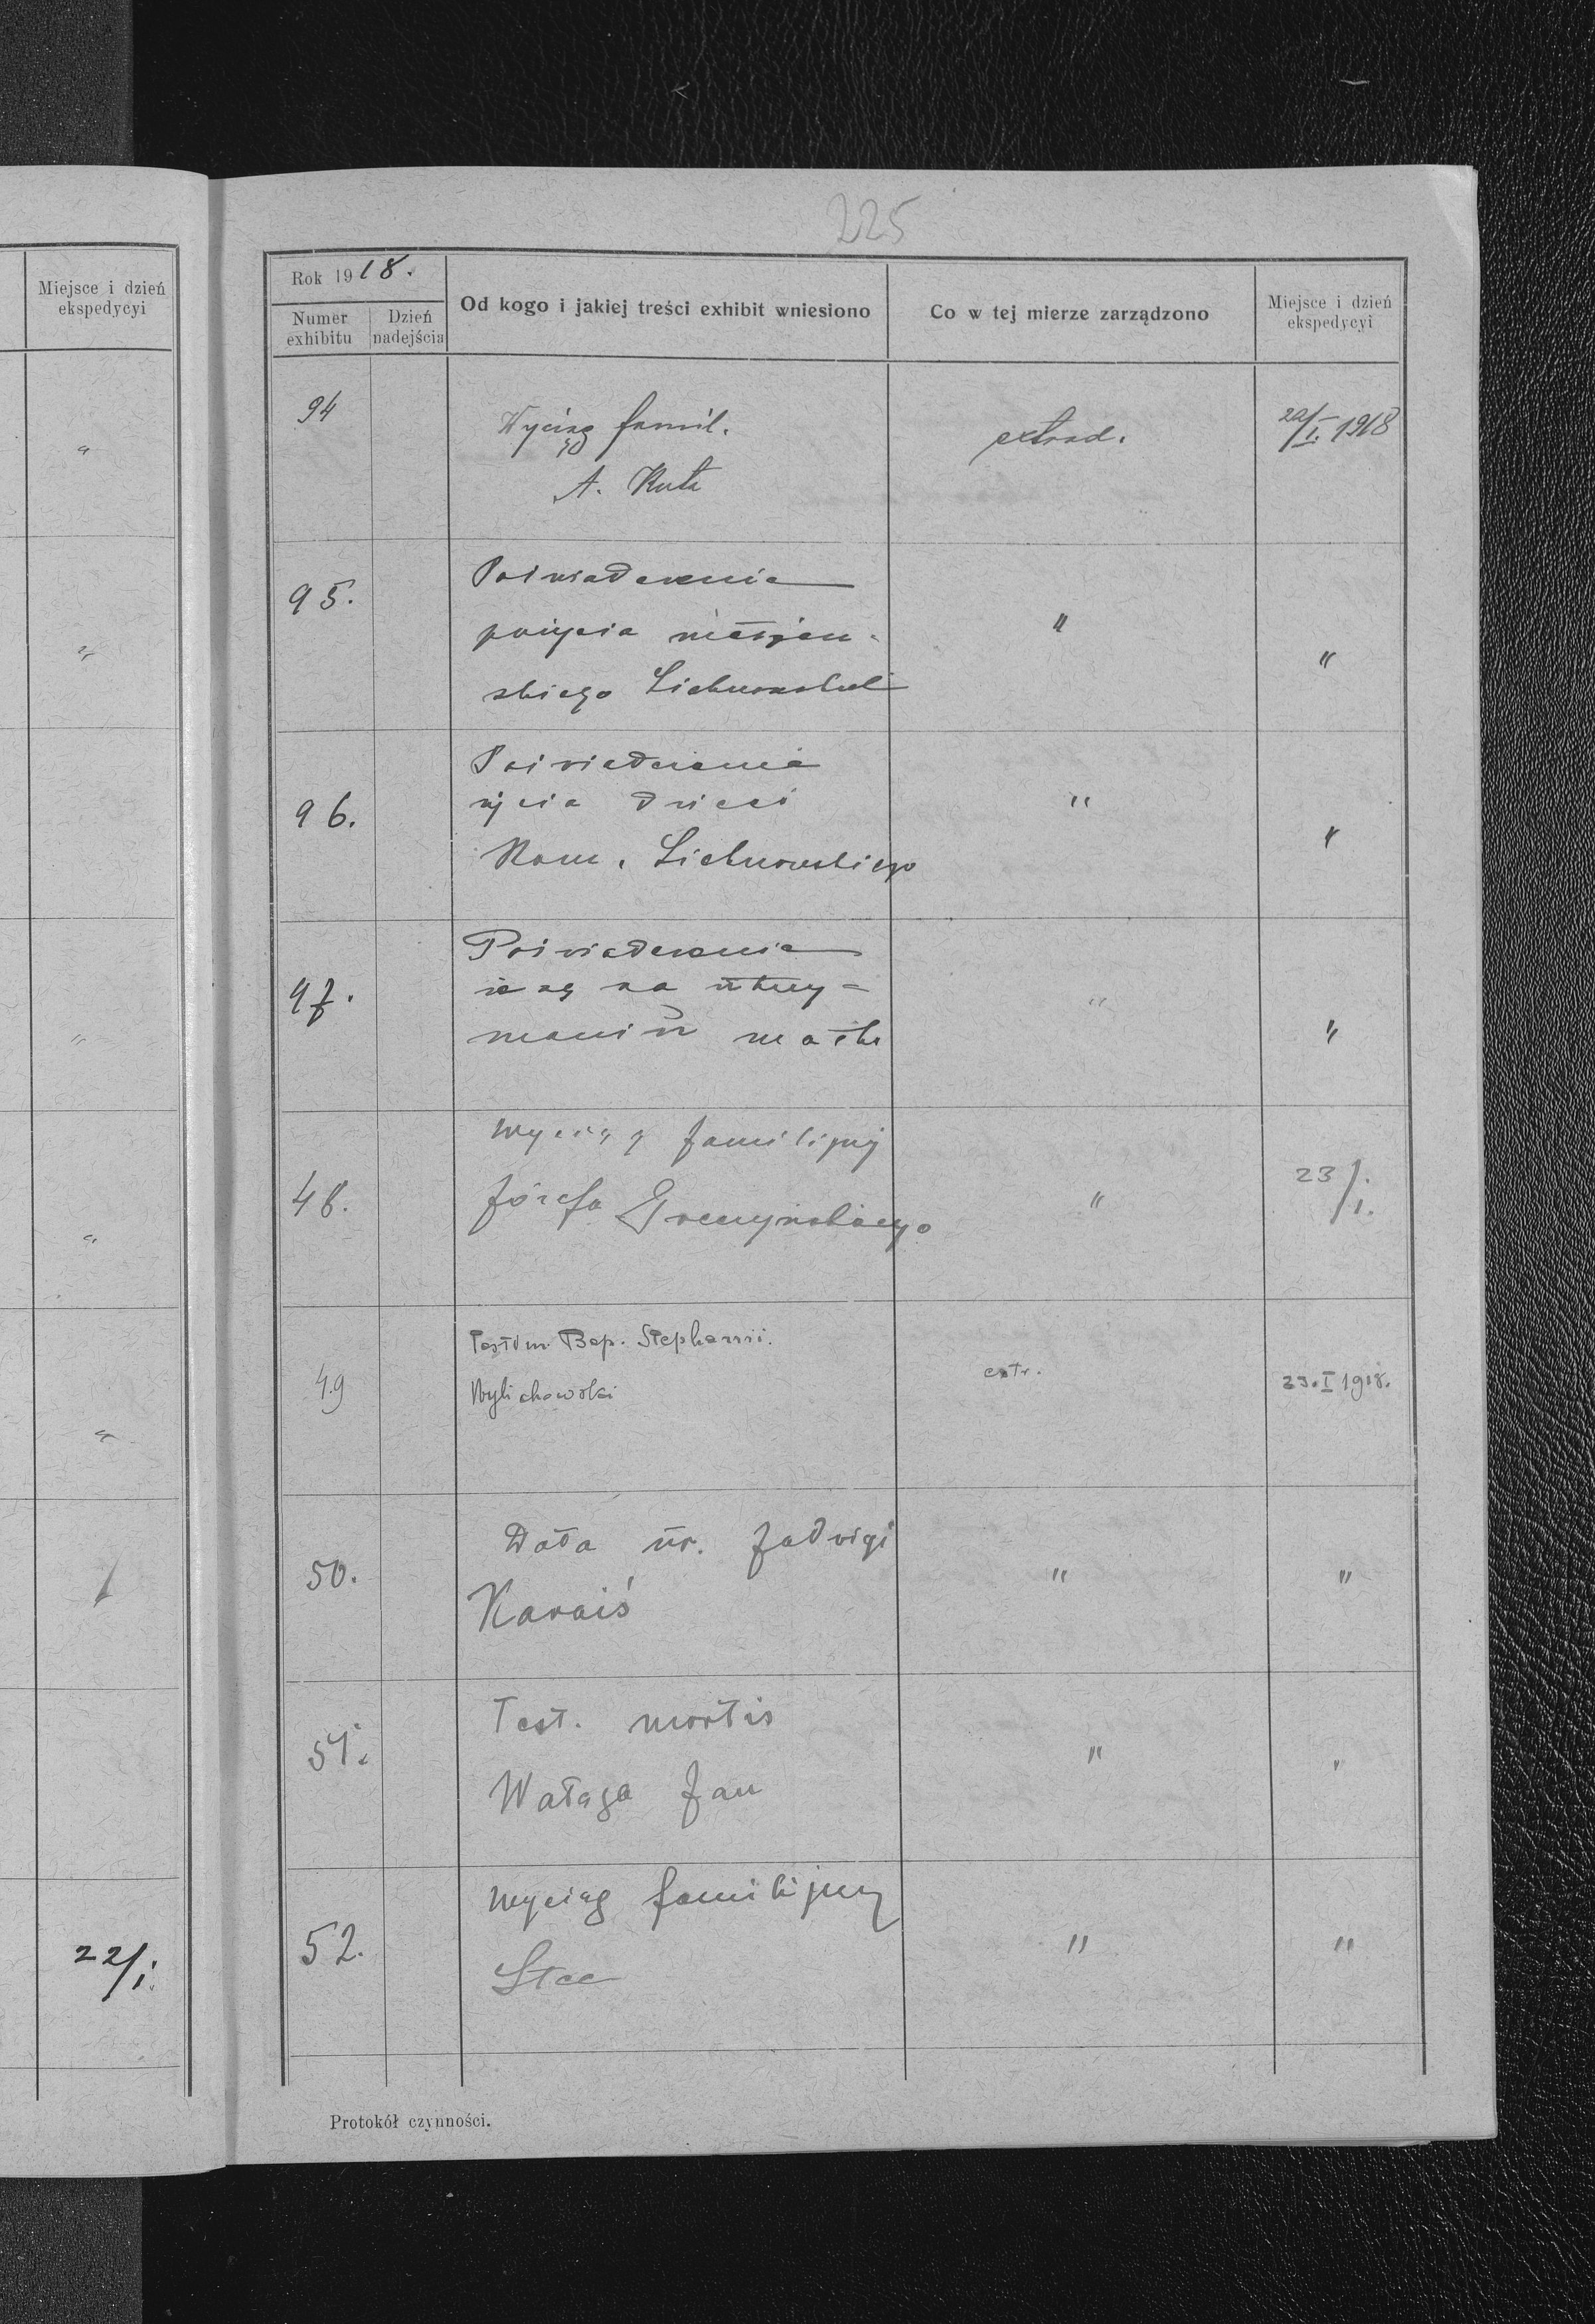 225
Miejsce i dzień
ekspedycyi
"
"
"
"
"
22/I.
Rok 1918.
Numer exhibitu
Dzień nadejścia
Od kogo i jakiej treści exhibit wniesiono
Co w tej mierze zarządzono
Miejsce i dzień ekspedycyi
94 Wyciąg famil. extrad. 22/I. 1918
A. Kuta
95. Poświadczenie
pożycia małżeń- " "
skiego
96. Poświadczenie
życia dzieci " "
Rom. Lichnowskiego
97. Poświadczenie
że są na utrzy= " "
maniu matki
48. Wyciąg familijny " 23/I.
Józefa
49 Testim. Bap. Stephanii. extr. 23.I 1918.
Wylichowski
50. Data ur. Jadwigi " "
Karaiś
51. Test. mortis " "
Wataga Jan
52. Wyciąg familijny " "
Stec
Protokół czynności.